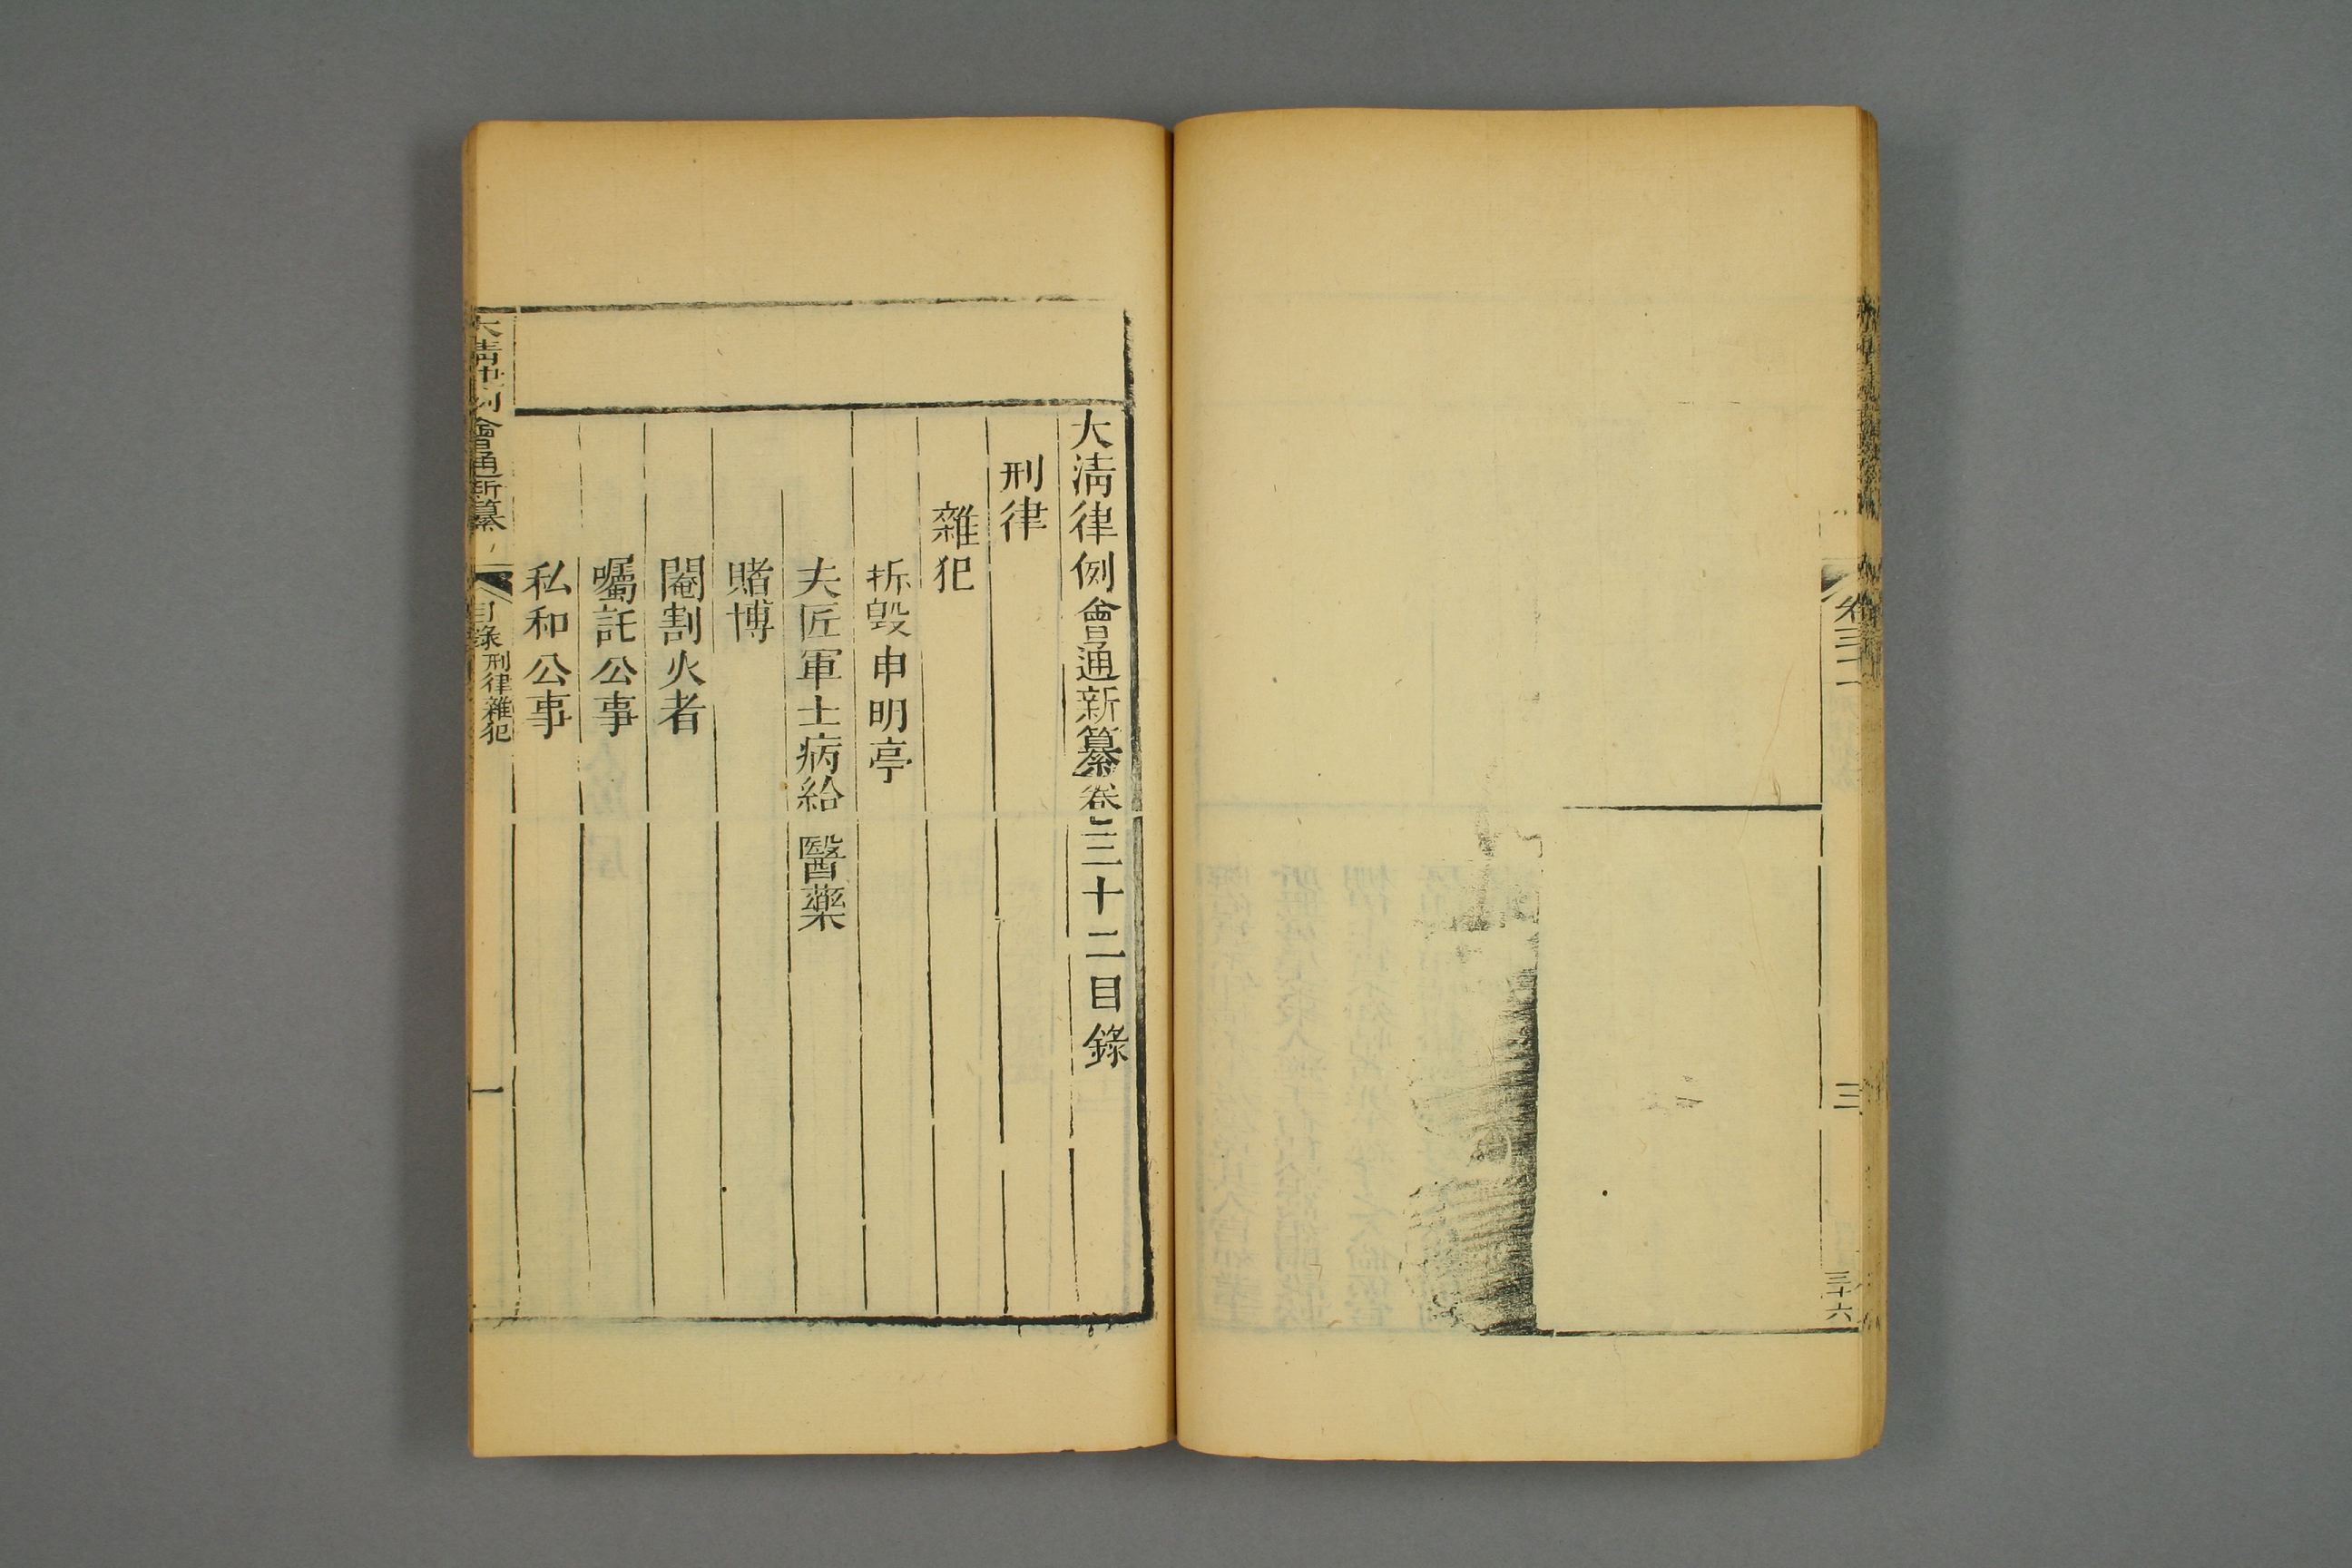 卷三二
三
三十六
大清律例會通新纂卷三十二目錄
刑律
雜犯
拆毀申明亭
夫匠軍士病給醫藥
賭博
閹割火者
囑託公事
私和公事
大清律例會通新纂
目錄 刑律雜犯
一